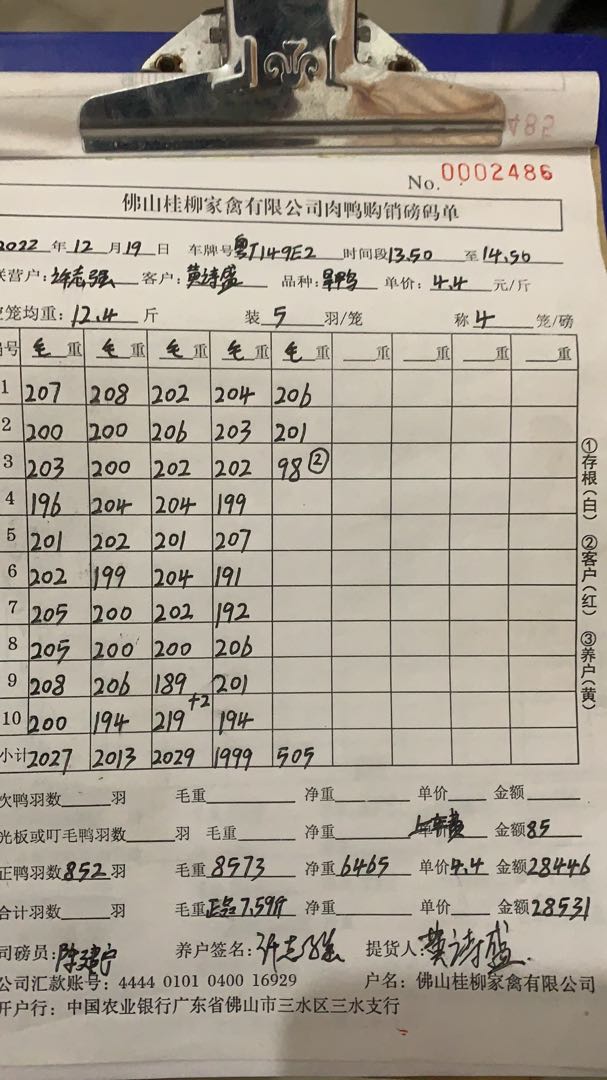 485
No. 0002486
佛山桂柳家禽有限公司肉鸭购销磅码单
2022 年 12 月 19 日 车牌号 粤T149E2 时间段 13.50 至 14.56
联营户: 许志强 客户: 黄诗盛 品种: 旱鸭 单价: 4.4 元/斤
空笼均重: 12.4 斤 装 5 羽/笼 称 4 笼/磅
编号 毛重 毛重 毛重 毛重 毛重 重 重 重 重
1 207 208 202 204 206
2 200 200 206 203 201
3 203 200 202 202 98 ②
4 196 204 204 199
5 201 202 201 207
6 202 199 204 191
7 205 200 202 192
8 205 200 200 206
9 208 206 189 201
10 200 194 219 +2 194
小计 2027 2013 2029 1999 505
次鸭羽数 羽 毛重 净重 单价 金额
光板或叮毛鸭羽数 羽 毛重 净重 金额 85
正鸭羽数 852 羽 毛重 8573 净重 6465 单价 4.4 金额 28446
合计羽数 羽 毛重 正品 7.59斤 净重 单价 金额 28531
司磅员: 养户签名: 许志强 提货人: 黄诗盛
公司汇款账号: 4444 0101 0400 16929 户名: 佛山桂柳家禽有限公司
开户行: 中国农业银行广东省佛山市三水区三水支行
①存根(白) ②客户(红) ③养户(黄)